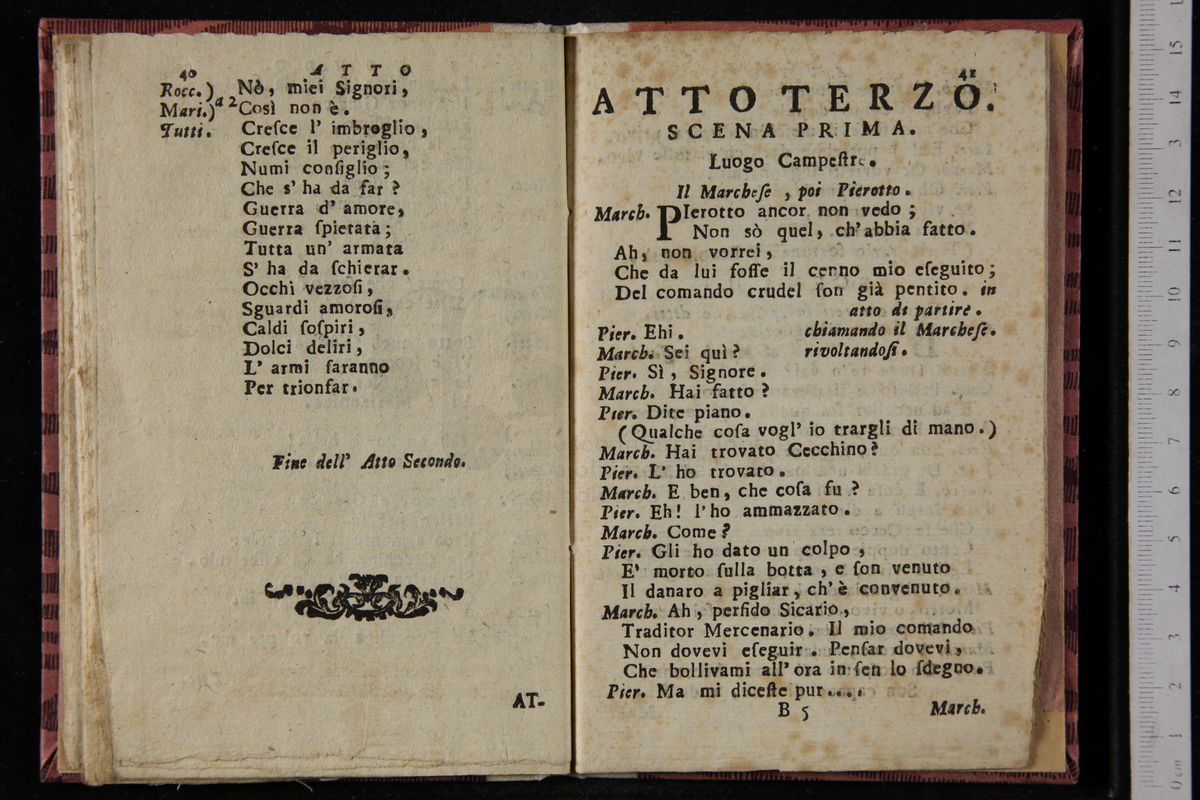 40 ATTO
Rocc.) Nò, miei Signori,
Mari.) a 2 Così non è.
Tutti. Creſce l' imbroglio,
Creſce il periglio,
Numi conſiglio;
Che s' ha da far?
Guerra d' amore,
Guerra ſpietata;
Tutta un' armata
S' ha da ſchierar.
Occhi vezzoſi,
Sguardi amoroſi,
Caldi ſoſpiri,
Dolci deliri,
L' armi ſaranno
Per trionfar.
Fine dell' Atto Secondo.
AT-
41
ATTO TERZO.
SCENA PRIMA.
Luogo Campeſtre.
Il Marcheſe, poi Pierotto.
March. PIerotto ancor non vedo;
Non sò quel, ch'abbia fatto.
Ah, non vorrei,
Che da lui foſſe il cenno mio eſeguito;
Del comando crudel ſon già pentito. in
atto di partire.
Pier. Ehi. chiamando il Marcheſe.
March. Sei quì? rivoltandoſi.
Pier. Sì, Signore.
March. Hai fatto?
Pier. Dite piano.
(Qualche coſa vogl' io trargli di mano.)
March. Hai trovato Cecchino?
Pier. L' ho trovato.
March. E ben, che coſa fu?
Pier. Eh! l'ho ammazzato.
March. Come?
Pier. Gli ho dato un colpo,
E' morto ſulla botta, e ſon venuto
Il danaro a pigliar, ch'è convenuto.
March. Ah, perfido Sicario,
Traditor Mercenario. Il mio comando
Non dovevi eſeguir. Penſar dovevi,
Che bollivami all' ora in ſen lo ſdegno.
Pier. Ma mi diceſte pur....
B 5 March.
0 cm 1 2 3 4 5 6 7 8 9 10 11 12 13 14 15